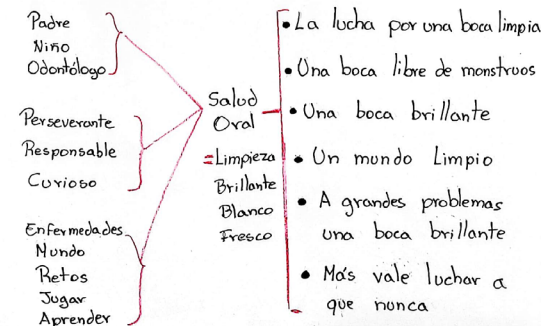 Padre
Niño
Odontólogo
Perseverante
Responsable
Curioso
Enfermedades
Mundo
Retos
Jugar
Aprender
Salud
Oral
=Limpieza
Brillante
Blanco
Fresco
• La lucha por una boca limpia
• Una boca libre de monstruos
• Una boca brillante
• Un mundo Limpio
• A grandes problemas
una boca brillante
• Más vale luchar a
que nunca